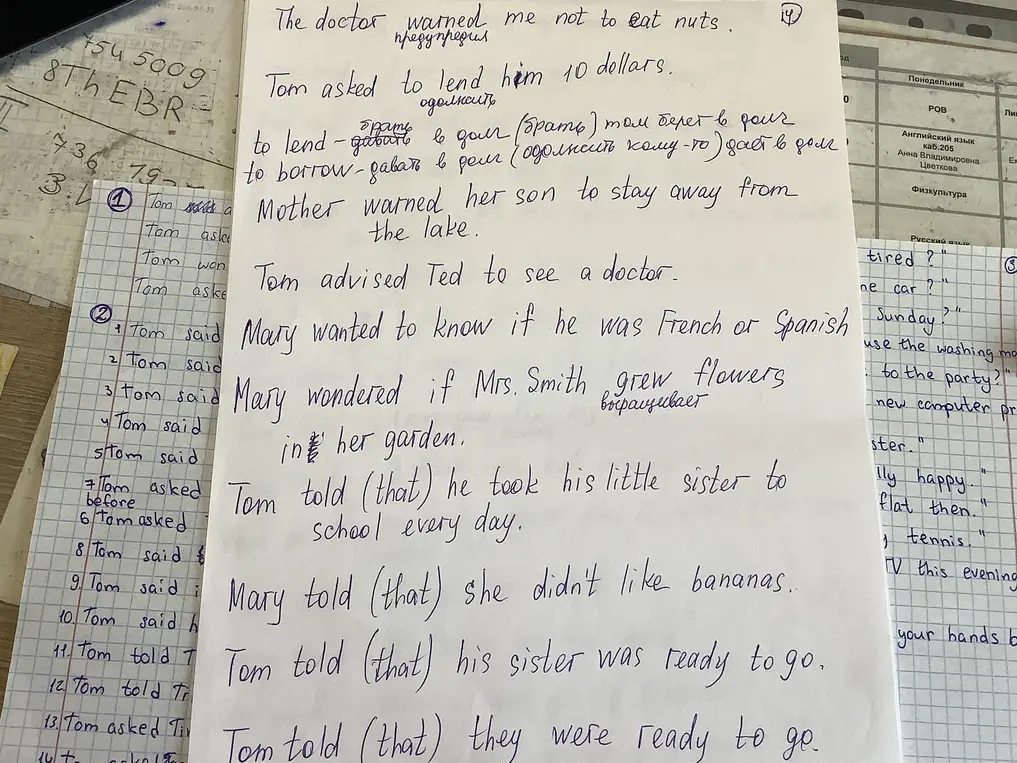 The doctor warned me not to eat nuts.
4
предупредил
Tom asked to lend him 10 dollars.
одолжить
to lend - брать давать в долг (брать) том берет в долг
to borrow - давать в долг (одолжить кому-то) даёт в долг
Mother warned her son to stay away from
the lake.
Tom advised Ted to see a doctor.
Mary wanted to know if he was French or Spanish
Mary wondered if Mrs. Smith grew flowers
выращивает
in her garden.
Tom told (that) he took his little sister to
school every day.
Mary told (that) she didn't like bananas.
Tom told (that) his sister was ready to go.
Tom told (that) they were ready to go.
754 5009
8ThEBR
736
1 Tom
Tom
Tom
Tom
2
1 Tom said
2 Tom said
3 Tom said
4 Tom said
5 Tom said
7 Tom asked
before
6 Tom asked
8 Tom said
9. Tom said
10. Tom said
11. Tom told
12. Tom told
13. Tom asked
Понедельник
РОВ
Английский язык
каб.205
Анна Владимировна
Цветкова
Физкультура
Русский язык
3
tired?"
car?"
Sunday?"
use the washing
to the party?"
new computer
happy."
flat then."
tennis."
TV this evening
your hands